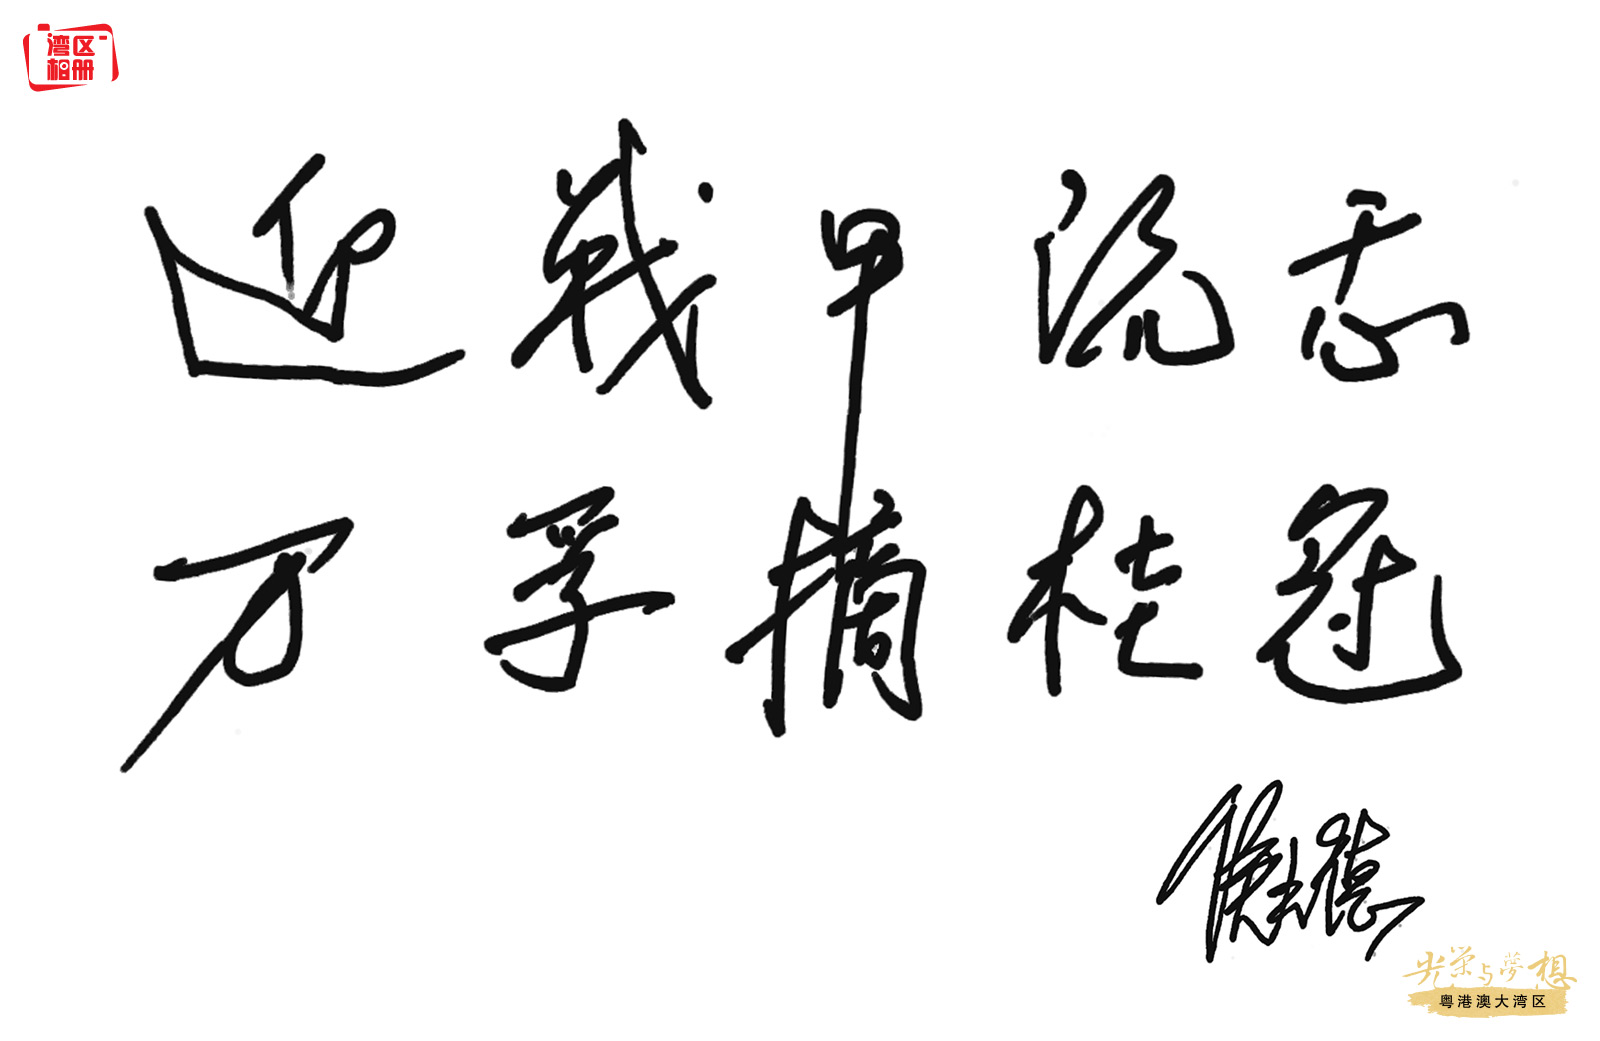 湾区
相册
迎战甲流志
万孚摘桂冠
光荣与梦想
粤港澳大湾区